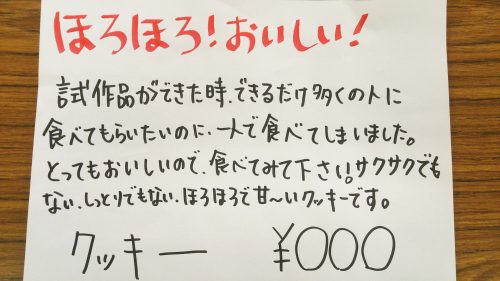 ほろほろ!おいしい!
試作品ができた時、できるだけ多くの人に
食べてもらいたいのに、一人で食べてしまいました。
とってもおいしいので、食べてみて下さい。サクサクでも
ない、しっとりでもない、ほろほろで甘〜いクッキーです。
クッキー ¥〇〇〇